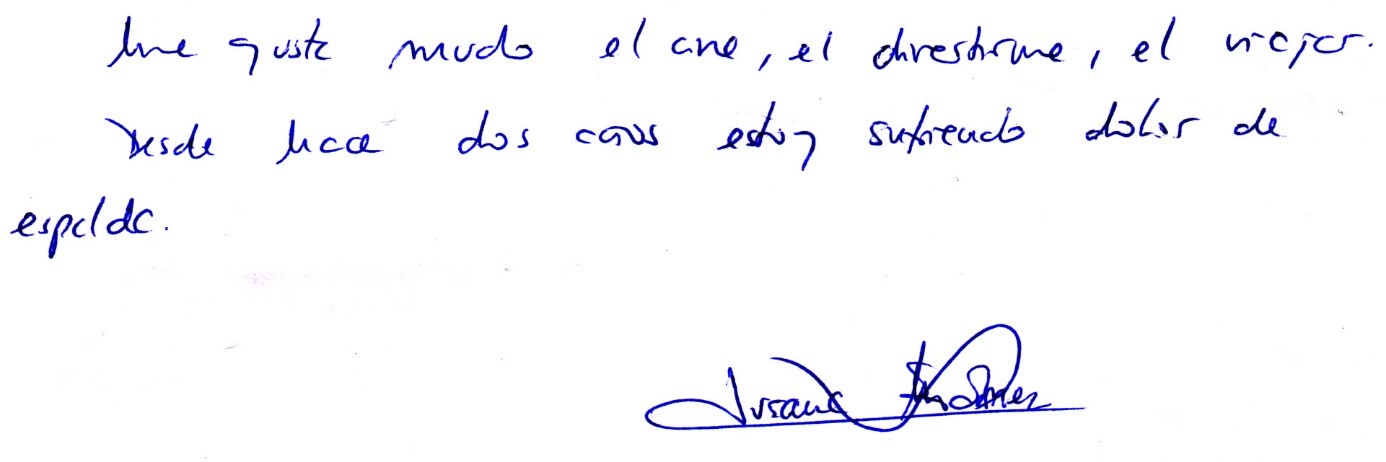 Me gusta mucho el cine, el divertirme, el viajar.
Desde hace dos años estoy sufriendo dolor de
espalda.
Susana